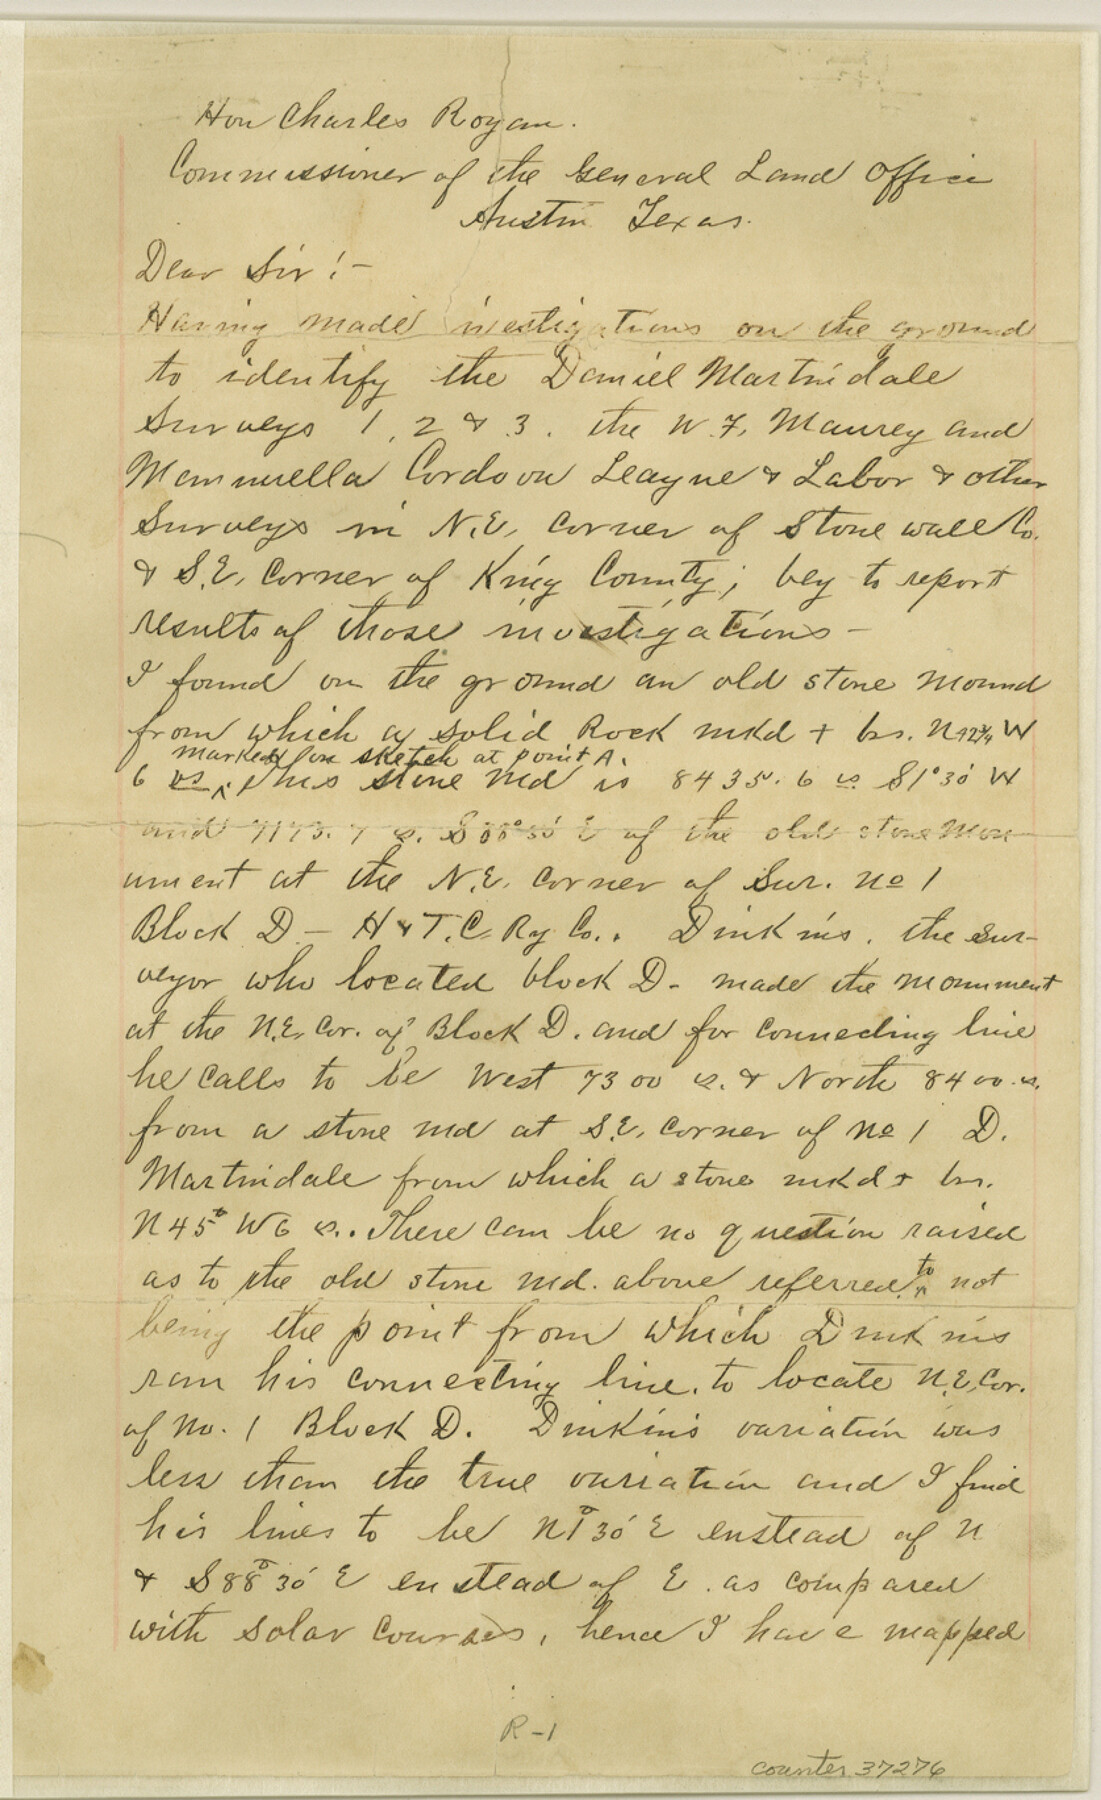 Hon Charles Rogan.
Commissioner of the General Land Office
Austin Texas.
Dear Sir!-
Having made investigations on the ground
to identify the Daniel Martindale
Surveys 1, 2 & 3. the W.F. Maurey and
Mannuella Cordova League & Labor & other
Surveys in N.E. Corner of Stonewall Co.
& S.E. Corner of King County; beg to report
results of those investigations-
I found on the ground an old stone mound
from which a solid Rock mkd + brs. N 42¾ W
marked on sketch at point A.
6 vs. ^ This stone Md is 8435.6 vs S1°30' W
and 7173.7 vs. S88°30' E of the old stone Mon-
ument at the N.E. Corner of Sur. No 1
Block D - H & T.C. Ry Co.. Dinkins. the Sur-
veyor who located block D- made the Monument
at the N.E. Cor. of Block D. and for connecting line
he calls to be West 7300 vs. & North 8400 vs.
from a stone Md at S.E. Corner of No 1 D.
Martindale from which a stone mkd + brs.
N45° W 6 vs.. There can be no question raised
as to the old stone Md. above referred ^to not
being the point from which Dinkins
ran his connecting line. to locate N.E. Cor.
of No. 1 Block D. Dinkins variation was
less than the true variation and I find
his lines to be N1°30' E enstead of N
& S88°30' E enstead of E. as compared
with solar courses, hence I have mapped
R-1
counter 37276